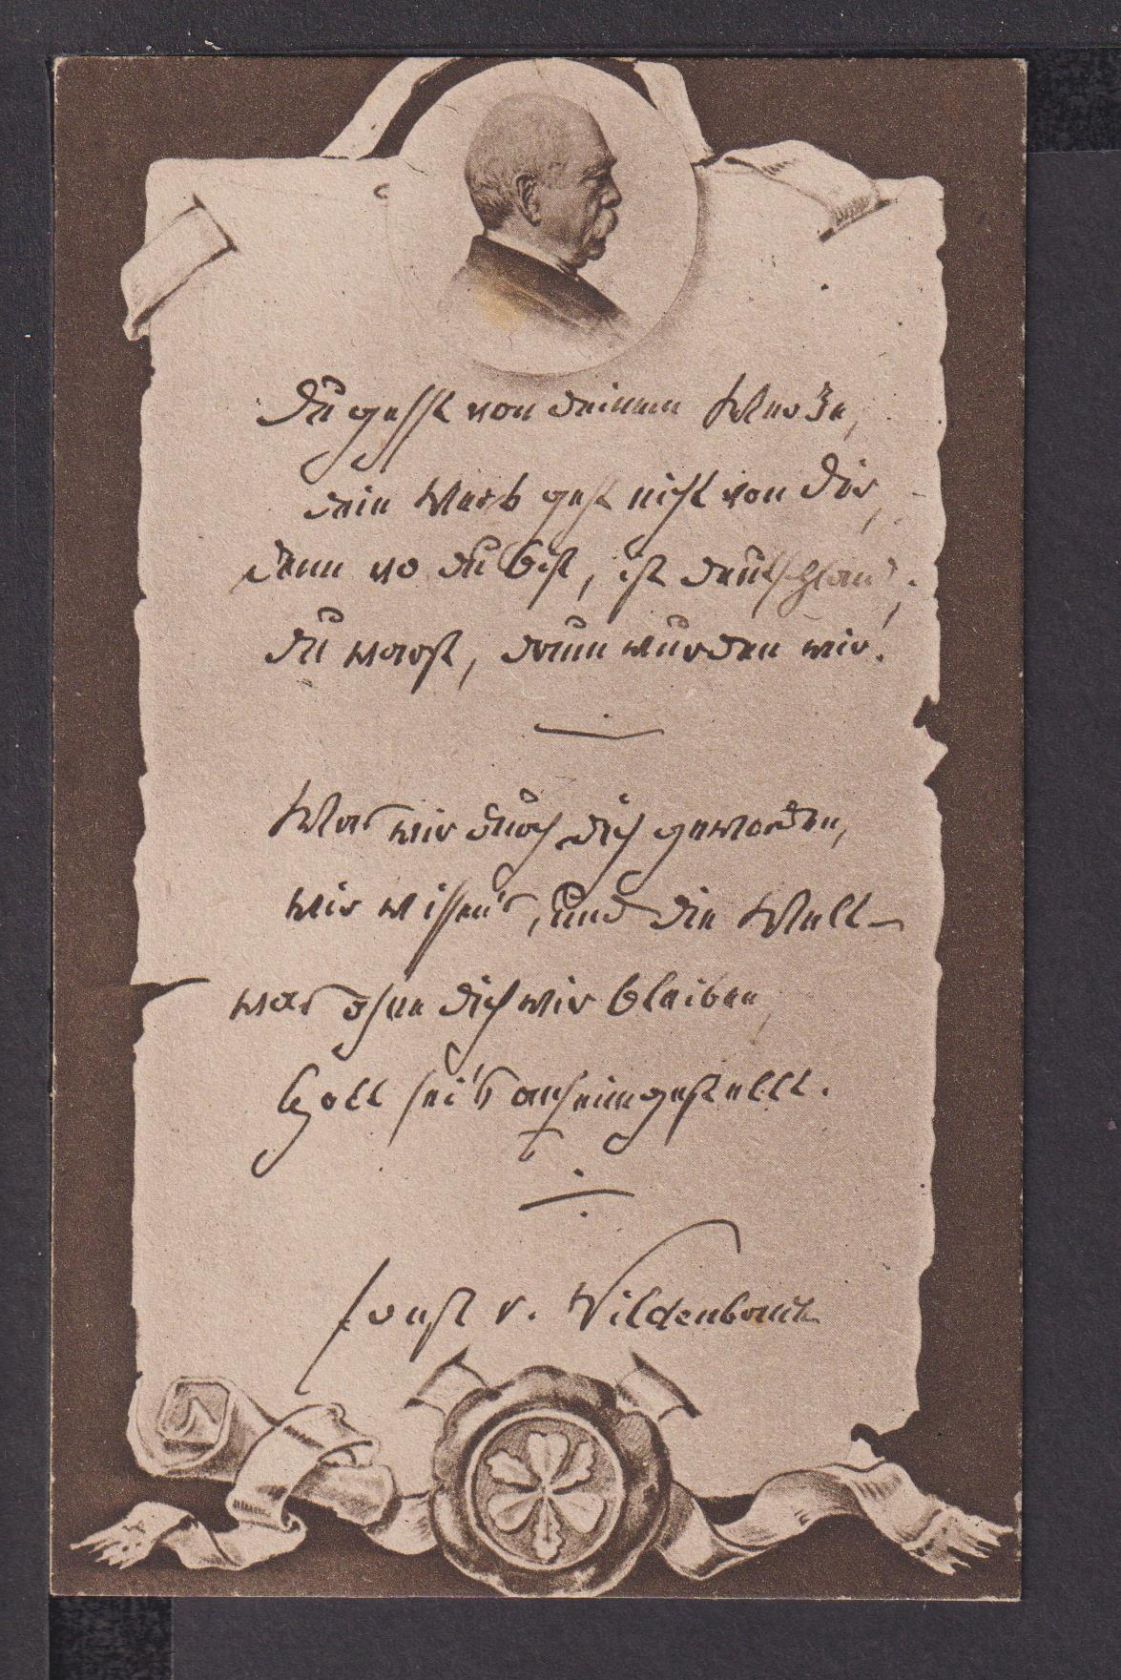 Du gehst von deinem Werke,
dein Werk geht nicht von Dir,
denn wo du bist, ist Deutschland,
du warst, drum wurden wir.
Was wir durch dich geworden,
wir wissen's, und die Welt –
was ohne dich wir bleiben,
Gott sei's anheimgestellt.
Ernst v. Wildenbruch